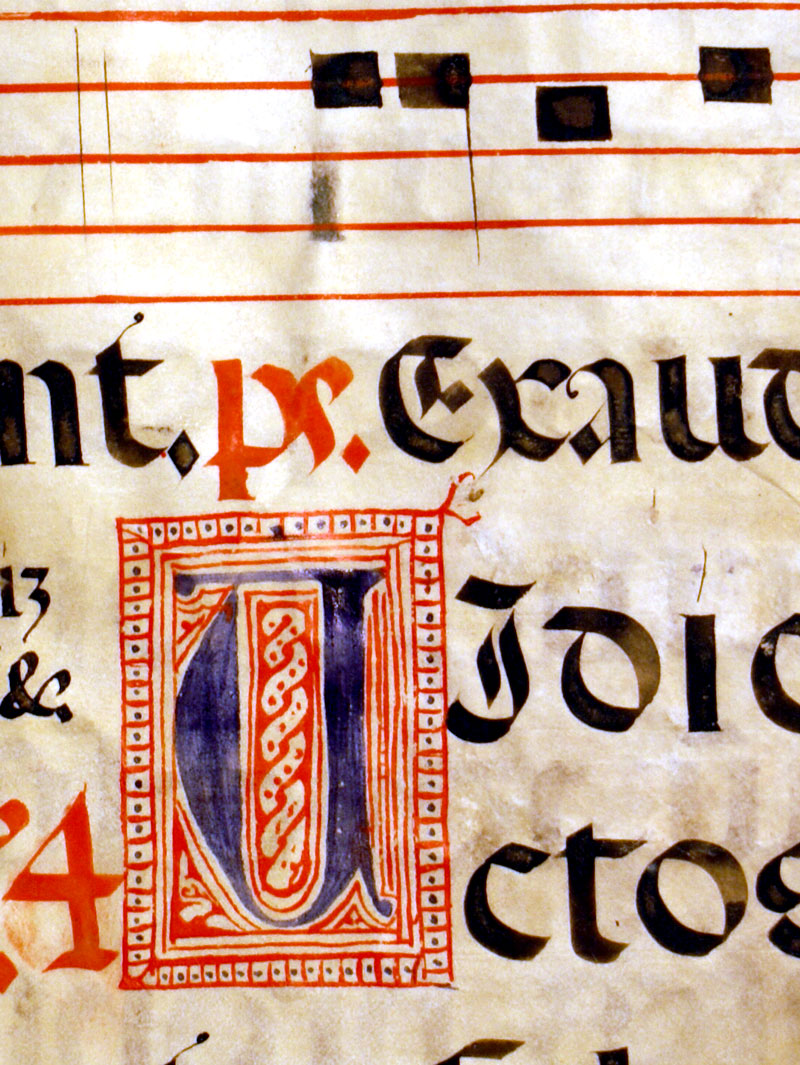 nt. ps. Exaud
13 U Idi c
&c.
4 ctos